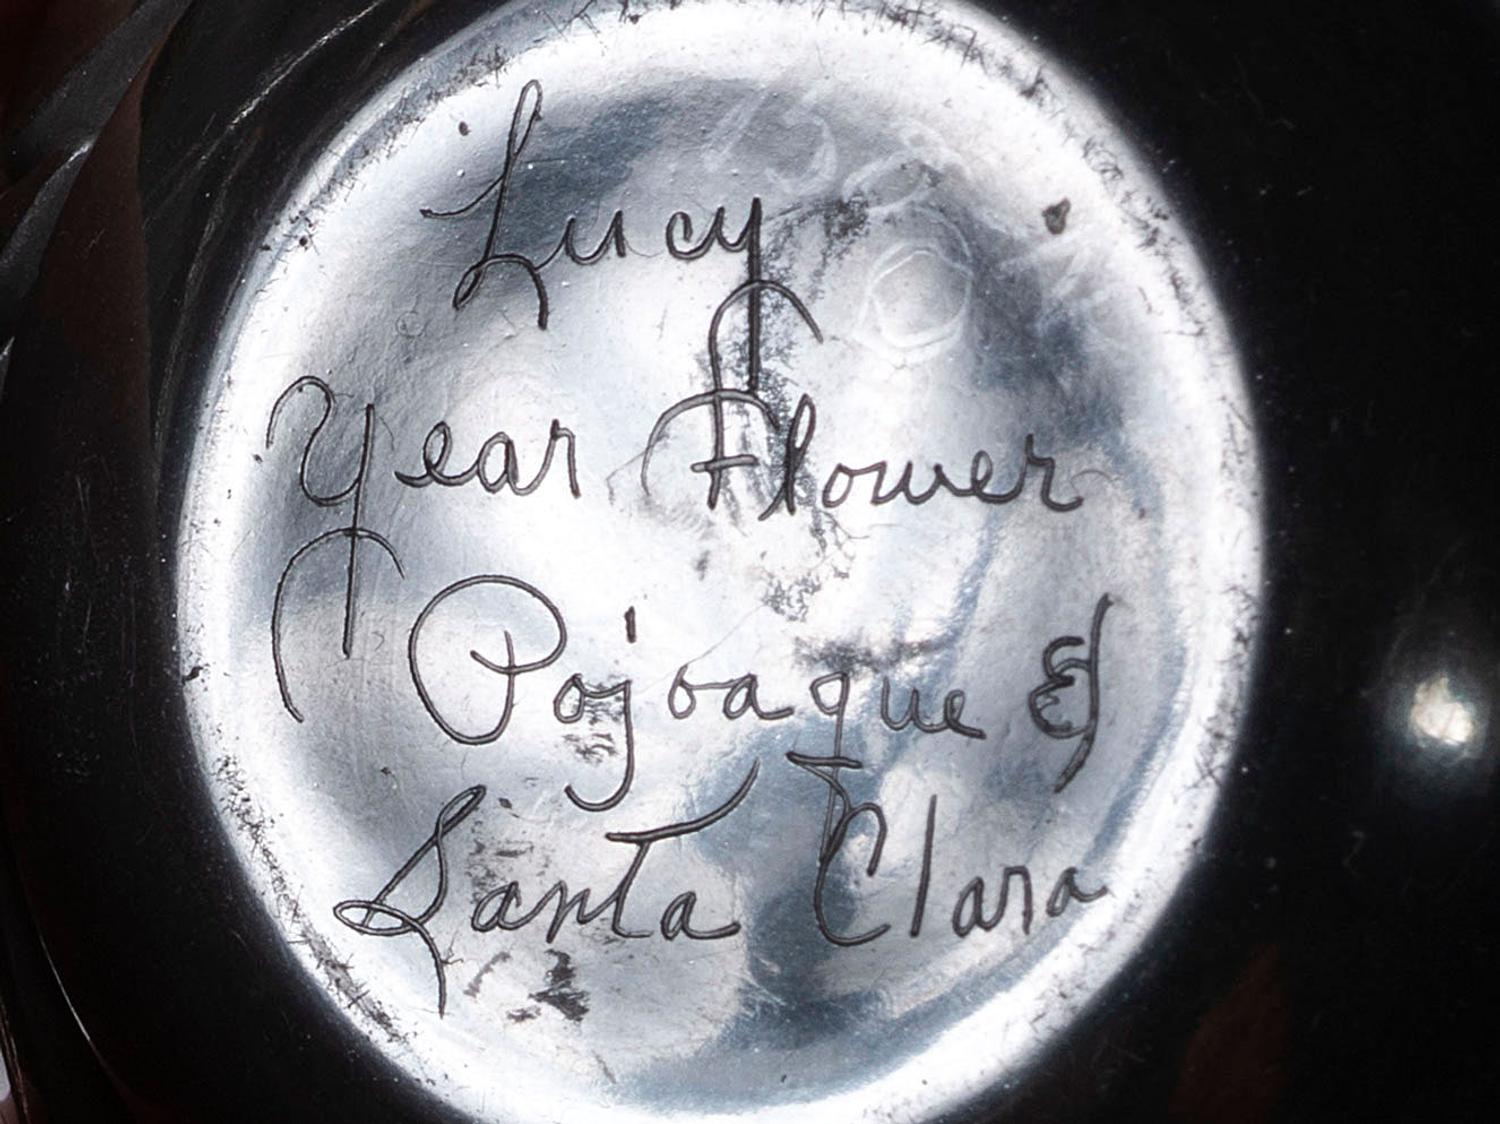 Lucy
Year Flower
Pojoaque &
Santa Clara